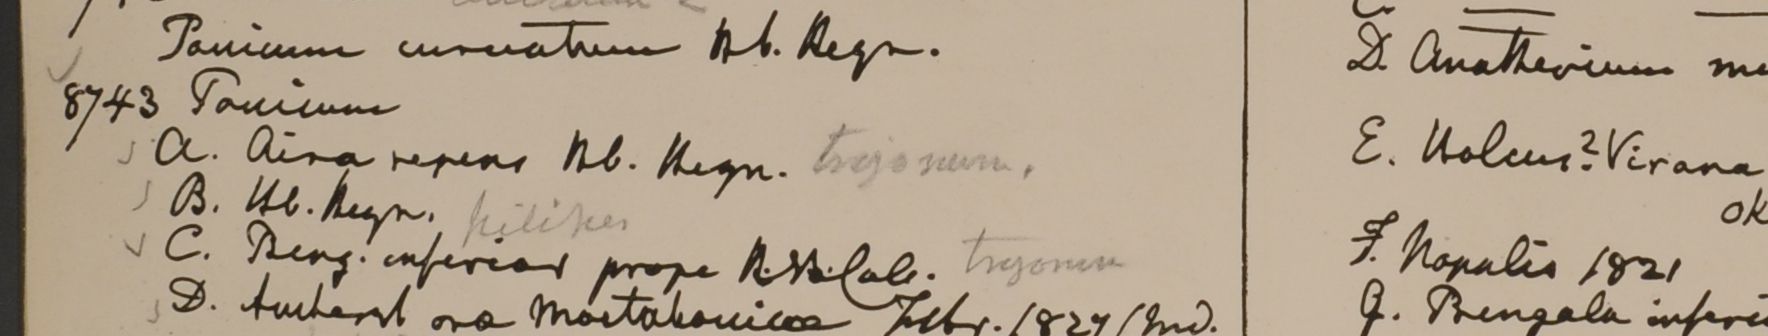 Panicum curvatum Hb. Heyn.
8743 Panicum
A. Aira repens Hb. Heyn. trigonum.
B. Hb. Heyn. pilipes
C. Beng. inferior prope H.B.Calc. trigonum
D. Amherst ora Martabanica Febr. 1827 (Ind.
D. Anatherium
E. Holcus? Virana
F. Napalia 1821
G. Bengala